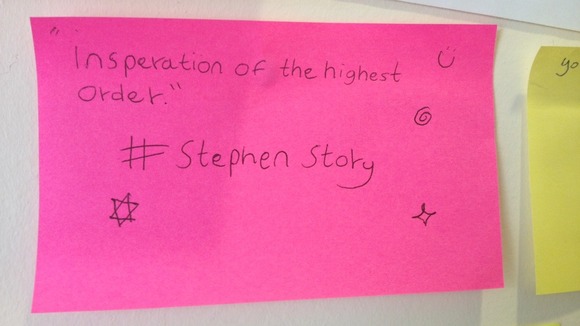 "Insperation of the highest
order."
# Stephen Story
yo